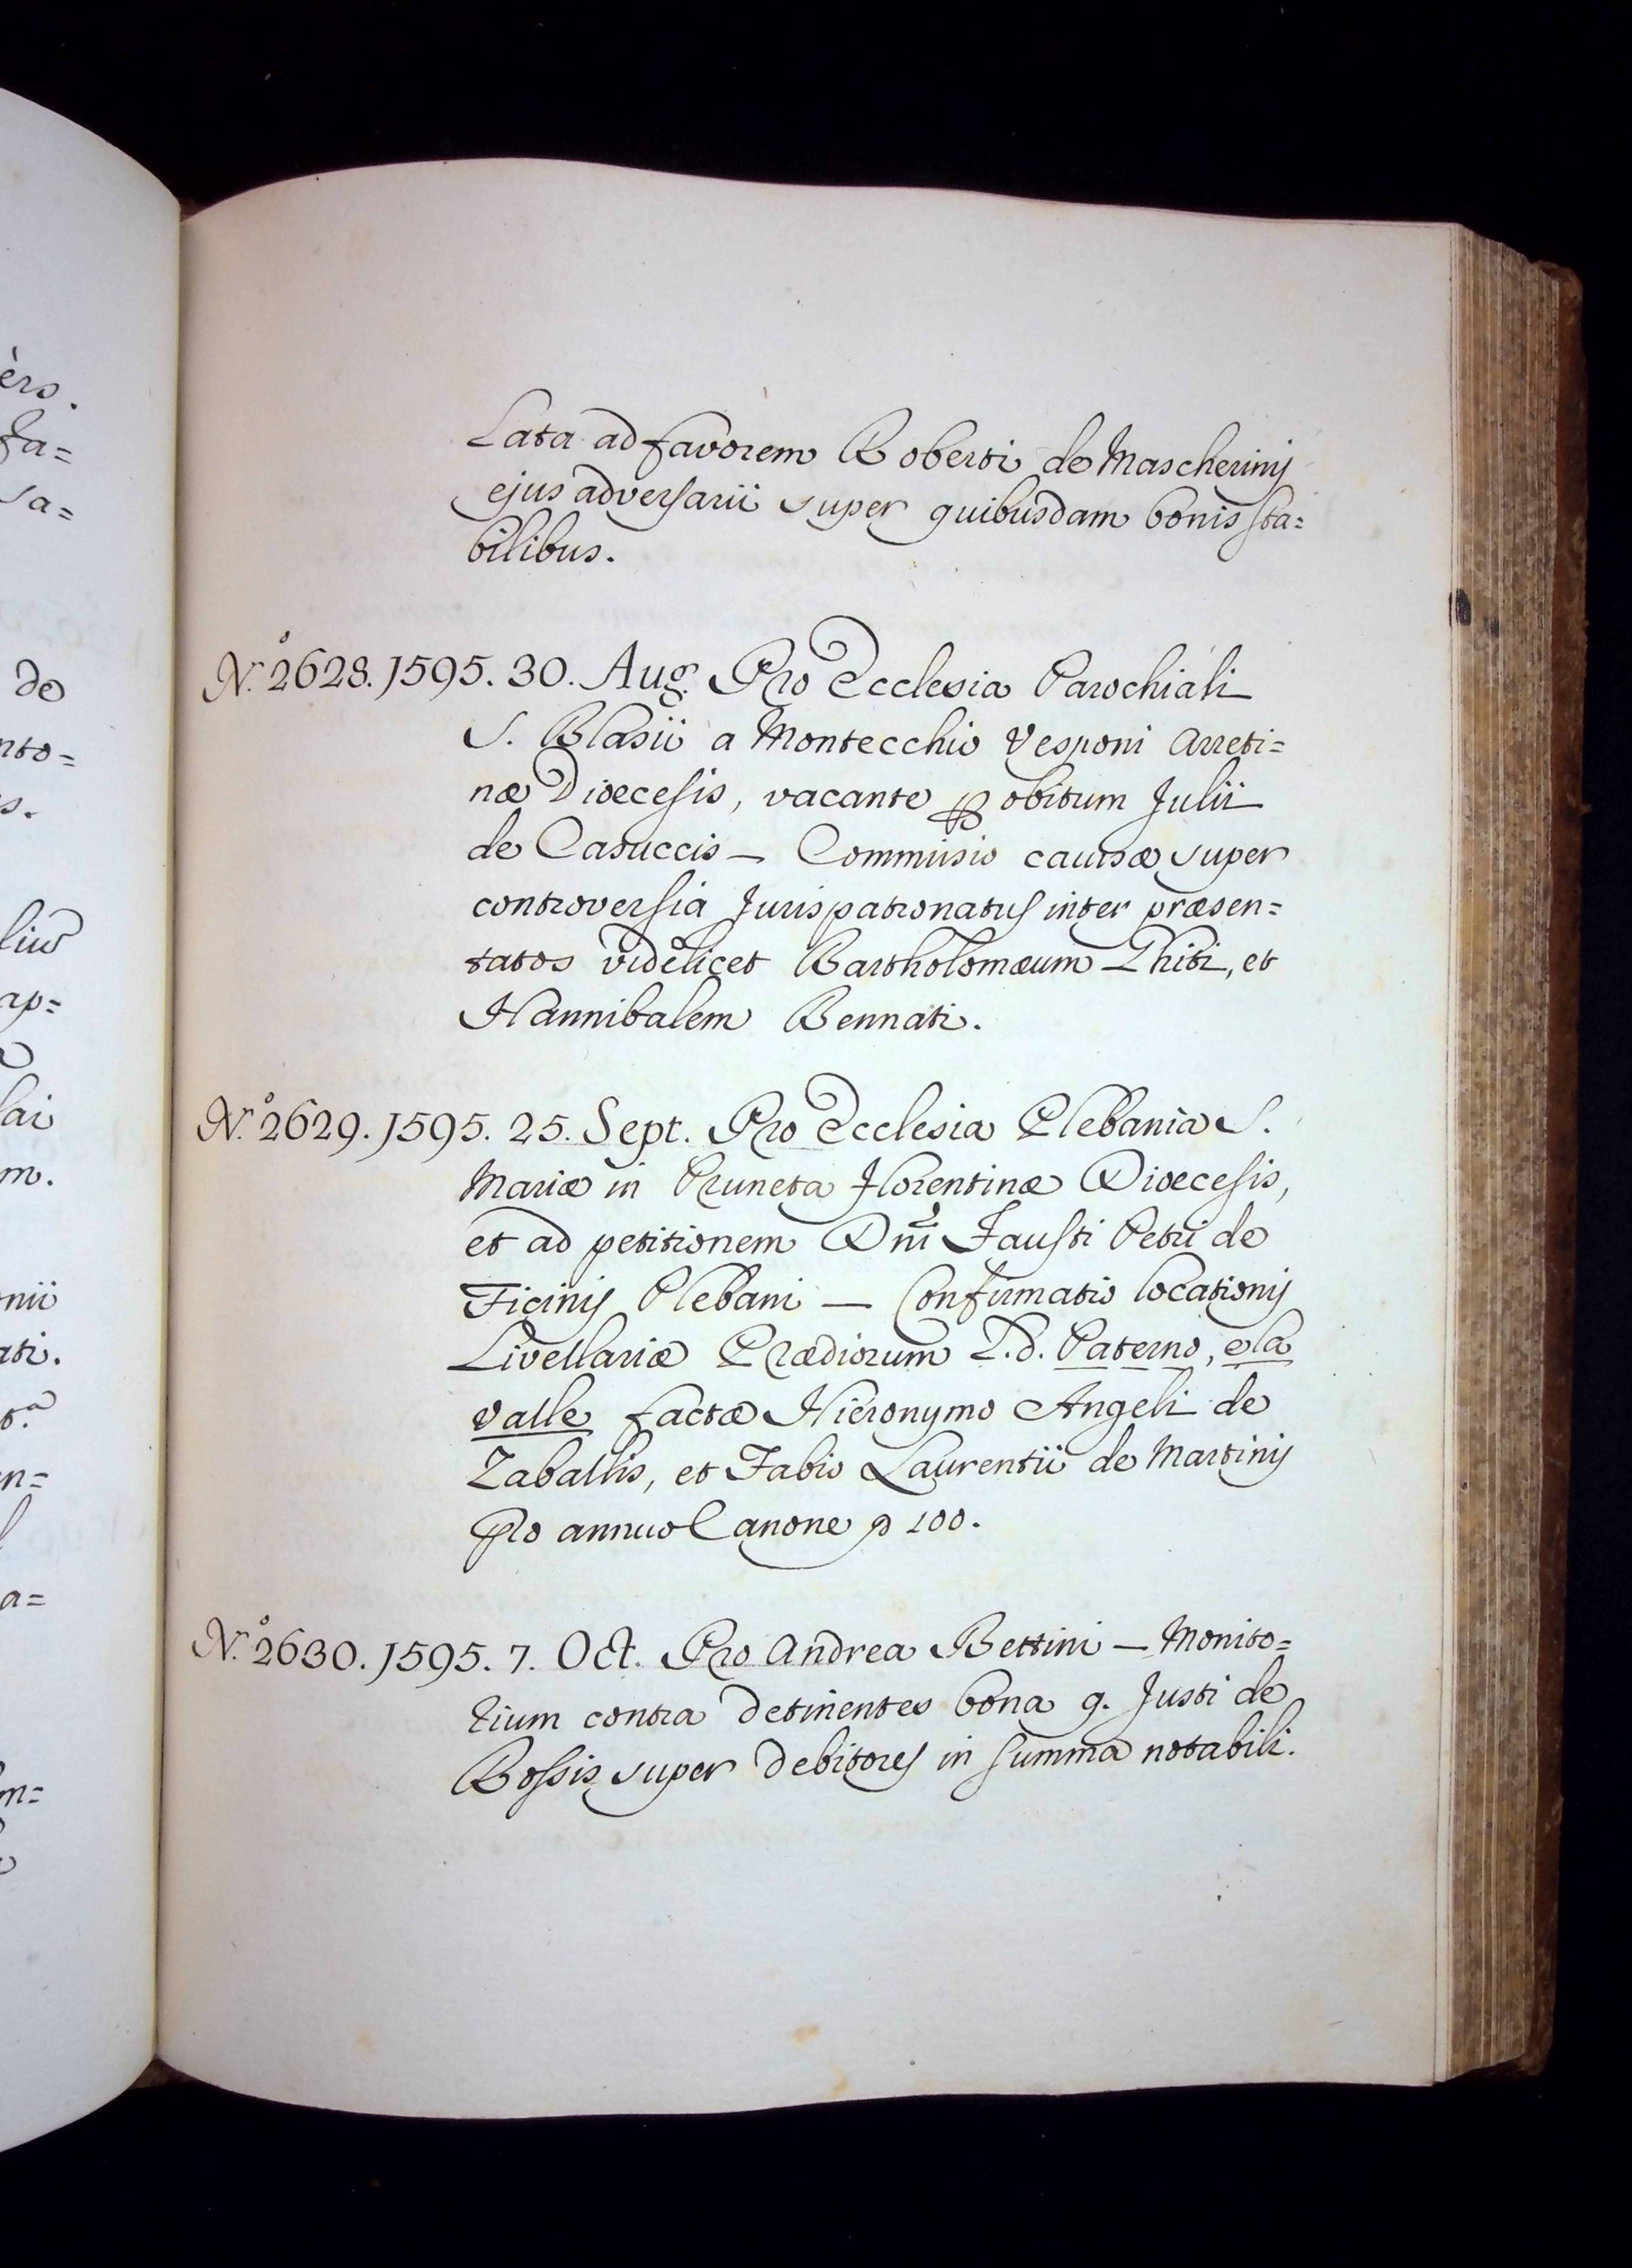 Lata ad favorem Roberti de Mascherinij
ejus adversarii super quibusdam bonis sta=
bilibus.
N.° 2628. 1595. 30. Aug. Pro Ecclesia Parochiali
S. Blasii a Montecchio Vesponi Arreti=
næ Dioecesis, vacante p obitum Julii
de Casuccis — Commissio causæ super
controversia Jurispatronatus inter præsen=
tatos videlicet Bartholomæum Thiti, et
Hannibalem Bennati.
N.° 2629. 1595. 25. Sept. Pro Ecclesia Plebania S.
Mariæ in Pruneta Florentinæ Dioecesis,
et ad petitionem Dni Fausti Petri de
Ficinij Plebani — Confirmatio locationij
Livellariæ Prædiorum L.d. Paterno, e la
valle factæ Hieronymo Angeli de
Zaballis, et Fabio Laurentii de Martinij
pro annuo Canone 100.
N.° 2630. 1595. 7. Oct. Pro Andrea Bettini — Monito=
rium contra detinentes bona q. Justi de
Bossis super debitores in summa notabili.